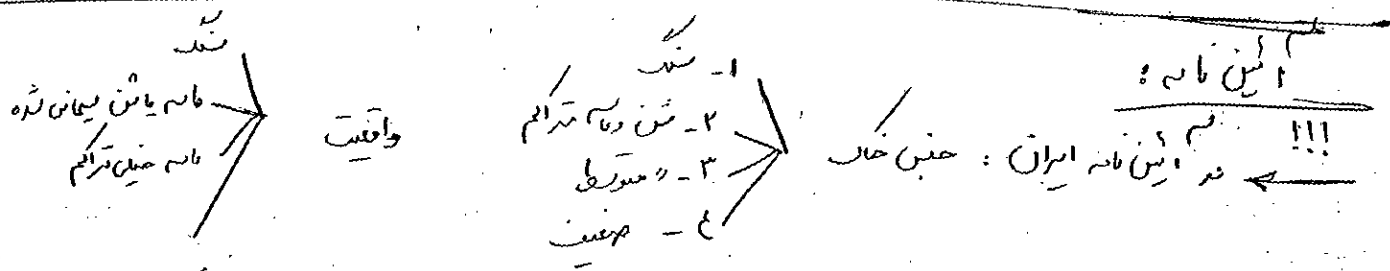 آئین نامه :
!!! در آئین نامه ایران : جنس خاک
۱- سنگ
۲- شن و ماسه متراکم
۳- " متوسط
۴- ضعیف
واقعیت
سنگ
ماسه یا شن سیمانی شده
ماسه خیلی متراکم